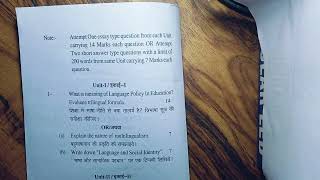 Note:- Attempt One essay type question from each Unit
carrying 14 Marks each question OR Attempt
Two short answer type questions with a limit of
200 words from same Unit carrying 7 Marks each
question.
Unit-I / इकाई-I
1- What is meaning of Language Policy In Education?
Evaluate trilingual formula. 14
शिक्षा में भाषा नीति से क्या तात्पर्य है? त्रिभाषा सूत्र की
समीक्षा कीजिए।
OR/अथवा
(a) Explain the nature of multilingualism. 7
बहुभाषावाद की प्रकृति को समझाइये।
(b) Write down "Language and Social Identity". 7
"भाषा और सामाजिक पहचान" पर एक टिप्पणी लिखिये।
Unit-II / इकाई-II